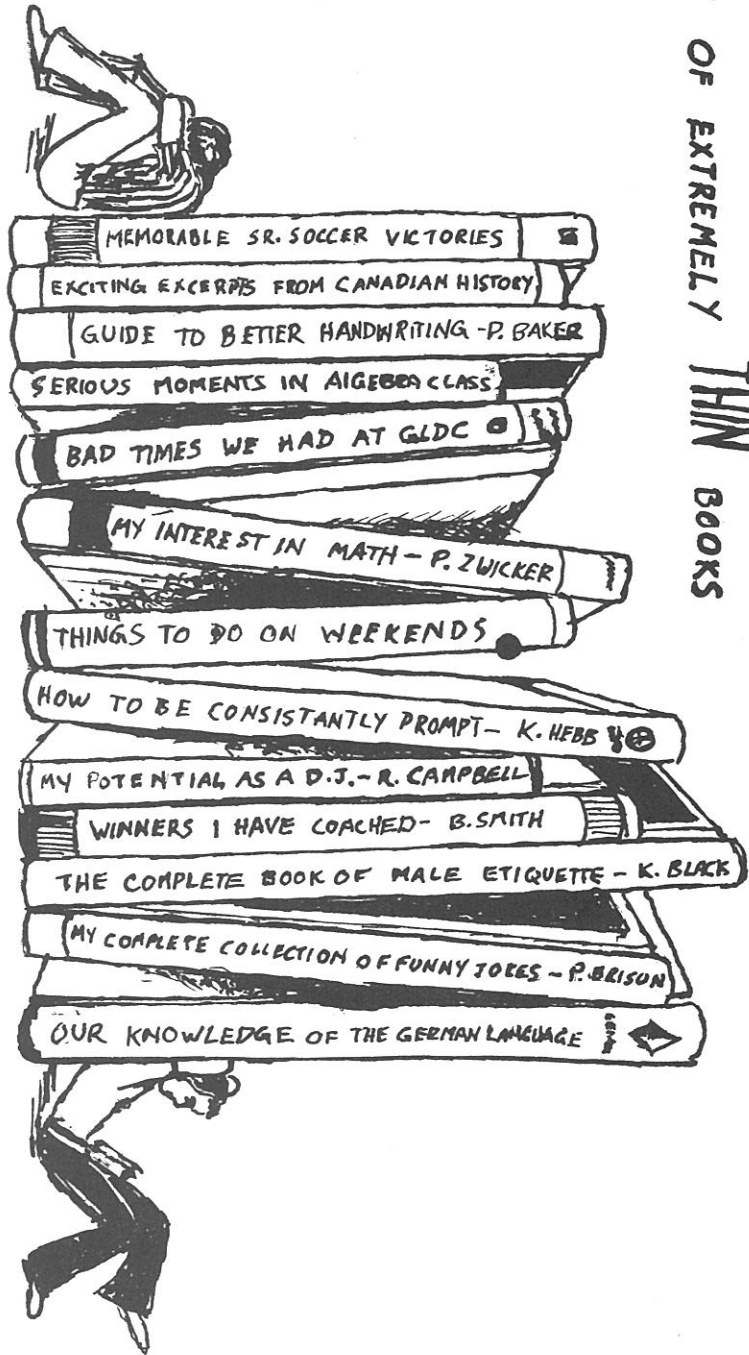 OF EXTREMELY THIN BOOKS
MEMORABLE SR. SOCCER VICTORIES
EXCITING EXCERPTS FROM CANADIAN HISTORY
GUIDE TO BETTER HANDWRITING - P. BAKER
SERIOUS MOMENTS IN AlGEBRA CLASS
BAD TIMES WE HAD AT GLDC
MY INTEREST IN MATH - P. ZWICKER
THINGS TO DO ON WEEKENDS
HOW TO BE CONSISTANTLY PROMPT - K. HEBB
MY POTENTIAL AS A D.J. - R. CAMPBELL
WINNERS I HAVE COACHED - B. SMITH
THE COMPLETE BOOK OF MALE ETIQUETTE - K. BLACK
MY COMPLETE COLLECTION OF FUNNY JOKES - P. BRISON
OUR KNOWLEDGE OF THE GERMAN LANGUAGE